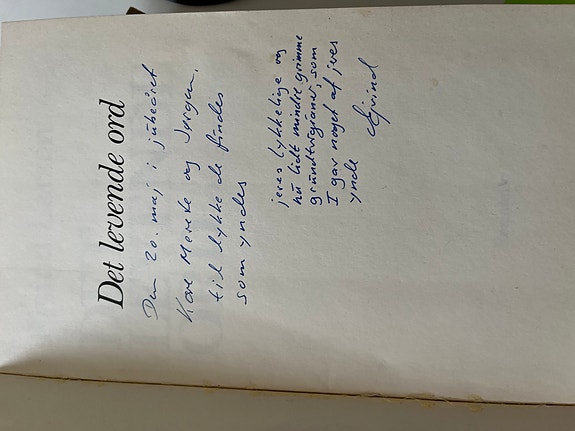 Det levende ord
Den 20. maj i jubelåret
Kære Merete og Jørgen,
til lykke de findes
som yndes
jeres lykkelige og
nu lidt mindre grimme
grundtvigianer, som
I gav noget af jeres
ynde
Ejvind